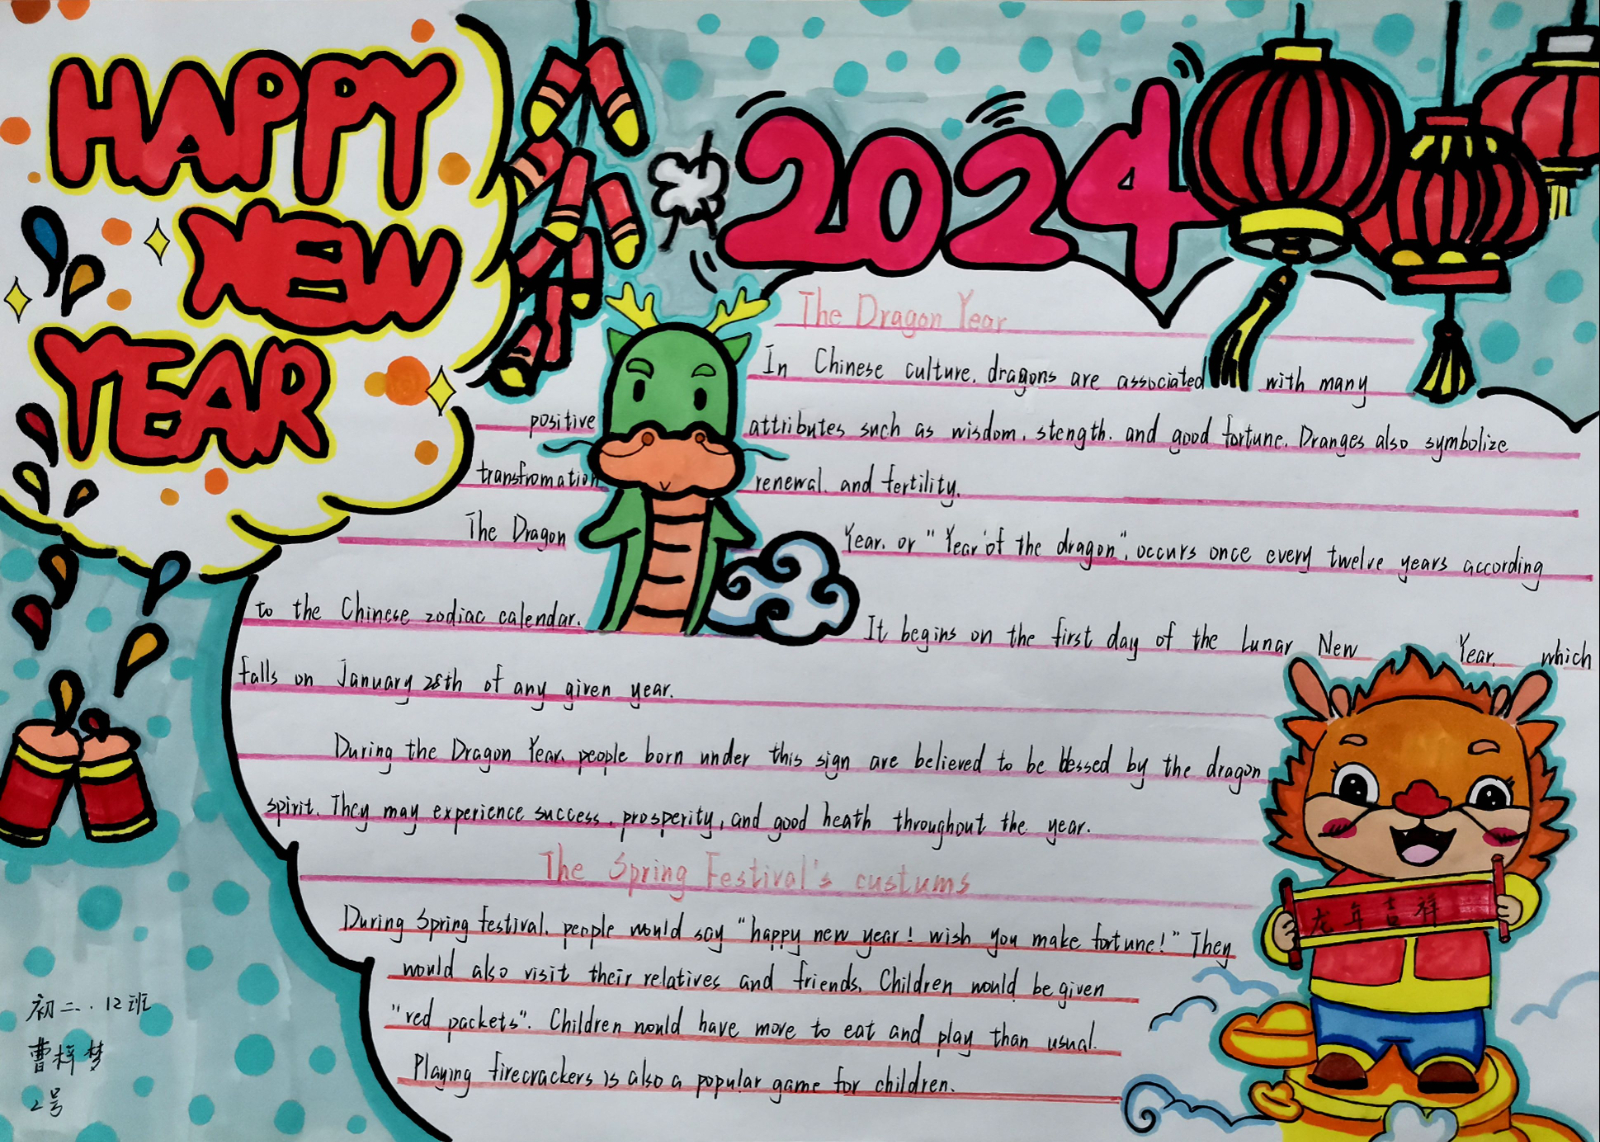 HAPPY
NEW
YEAR
2024
The Dragon Year
In Chinese culture. dragons are associated with many
positive attributes such as wisdom. stength. and good fortune. Dranges also symbolize
transfromation renewal. and fertility.
The Dragon Year. or "Year of the dragon". occurs once every twelve years according
to the Chinese zodiac calendar. It begins on the first day of the Lunar New Year. which
falls on January 28th of any given year.
During the Dragon Year. people born under this sign are believed to be blessed by the dragon
spirit. They may experience success. prosperity, and good heath throughout the year.
The Spring Festival's custums
During Spring festival. people would say "happy new year! wish you make fortune!" They
would also visit their relatives and friends. Children would be given
"red packets". Children would have more to eat and play than usual.
Playing firecrackers is also a popular game for children.
龙年吉祥
初二..12班
曹梓梦
2号